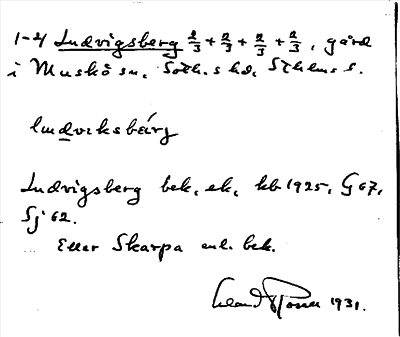 1-4 Ludvigsberg 2/3 + 2/3 + 2/3 + 2/3, gård
i Muskö sn. Soth.s hd. Sthlms s.
ludviksbärg
Ludvigsberg bek. ek. kb 1925, G 67,
Sj 62.
Efter Skarpa enl. bek.
1931.